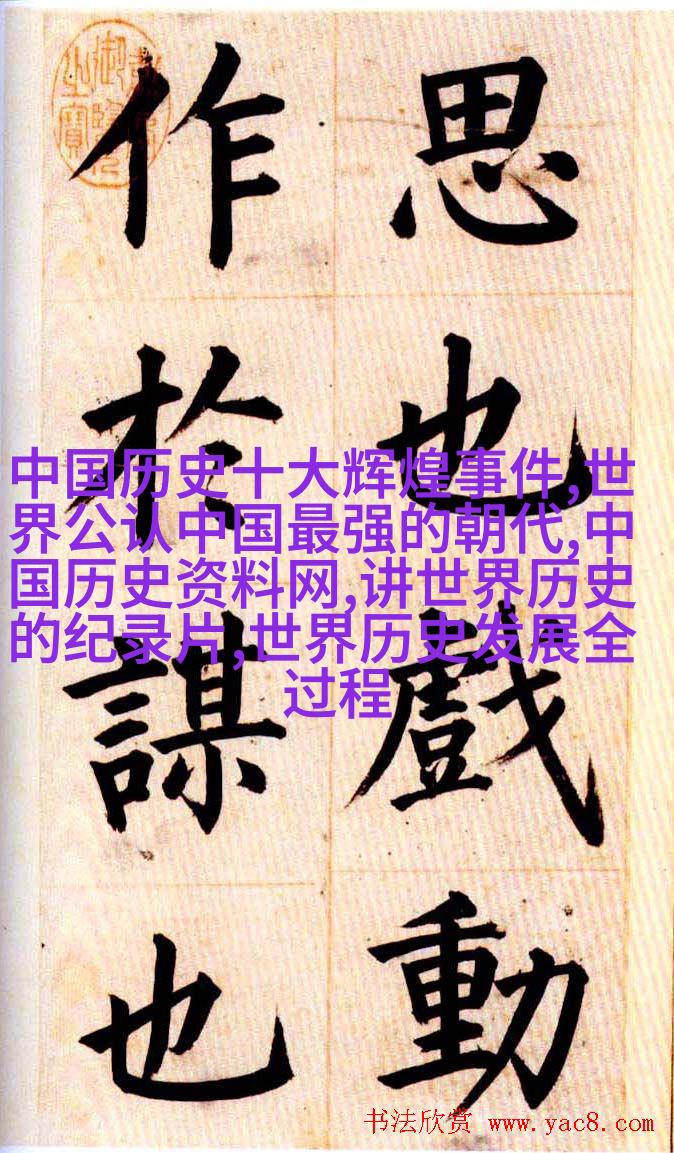 思也戲動
作於謀也
中国历史十大辉煌事件,世
界公认中国最强的朝代,中
国历史资料网,讲世界历史
的纪录片,世界历史发展全
过程
书法欣赏 www.yac8.com